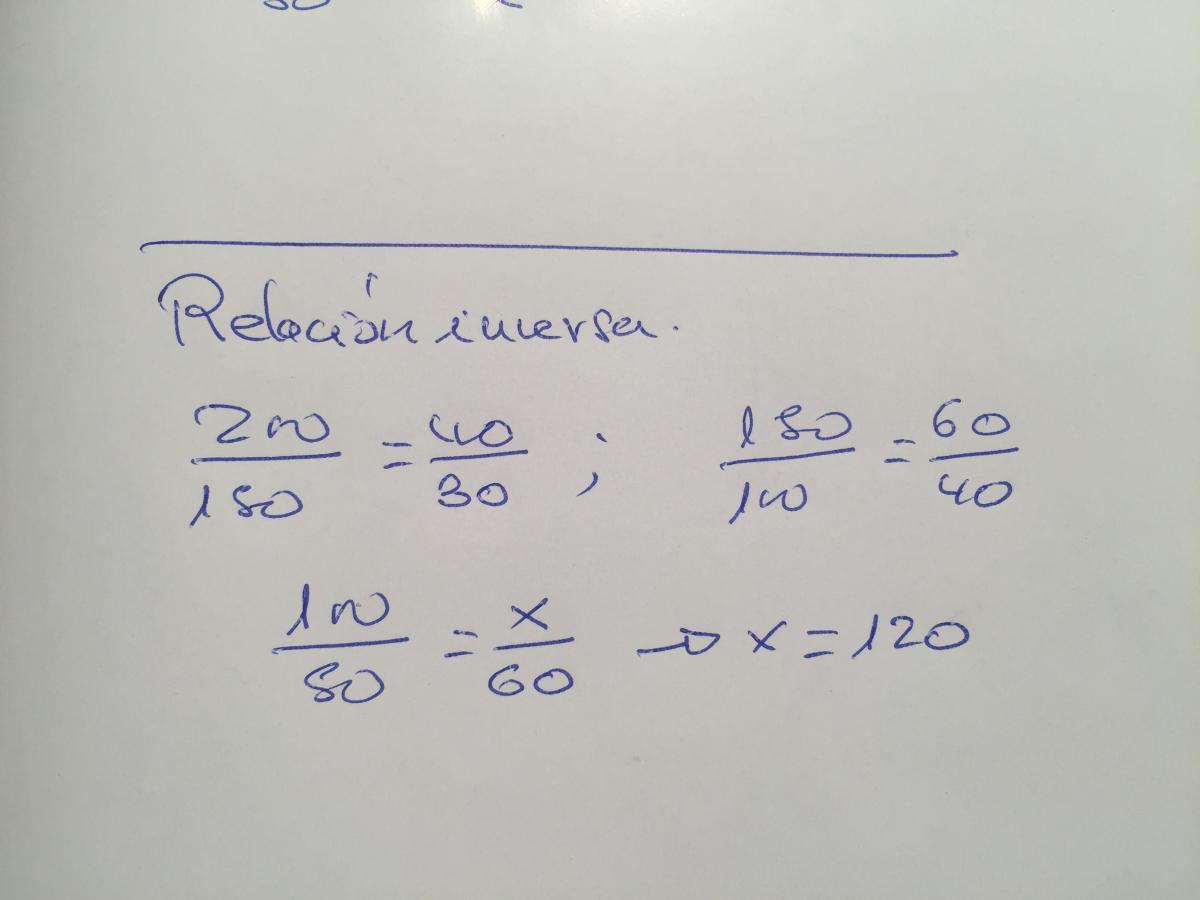 Relación inversa.
200/150 = 40/30 ; 150/100 = 60/40
100/50 = x/60 → x = 120